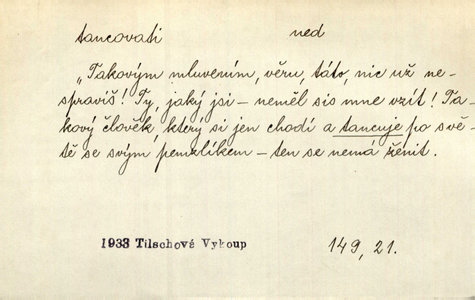 tancovati ned
„Takovým mluvením, věru, táto, nic už ne-
spravíš! Ty, jaký jsi – neměl sis mne vzít! Ta-
kový člověk, který si jen chodí a tancuje po svě-
tě se svým pemzlíkem – ten se nemá ženit.
1933 Tilschové Vykoup 149, 21.